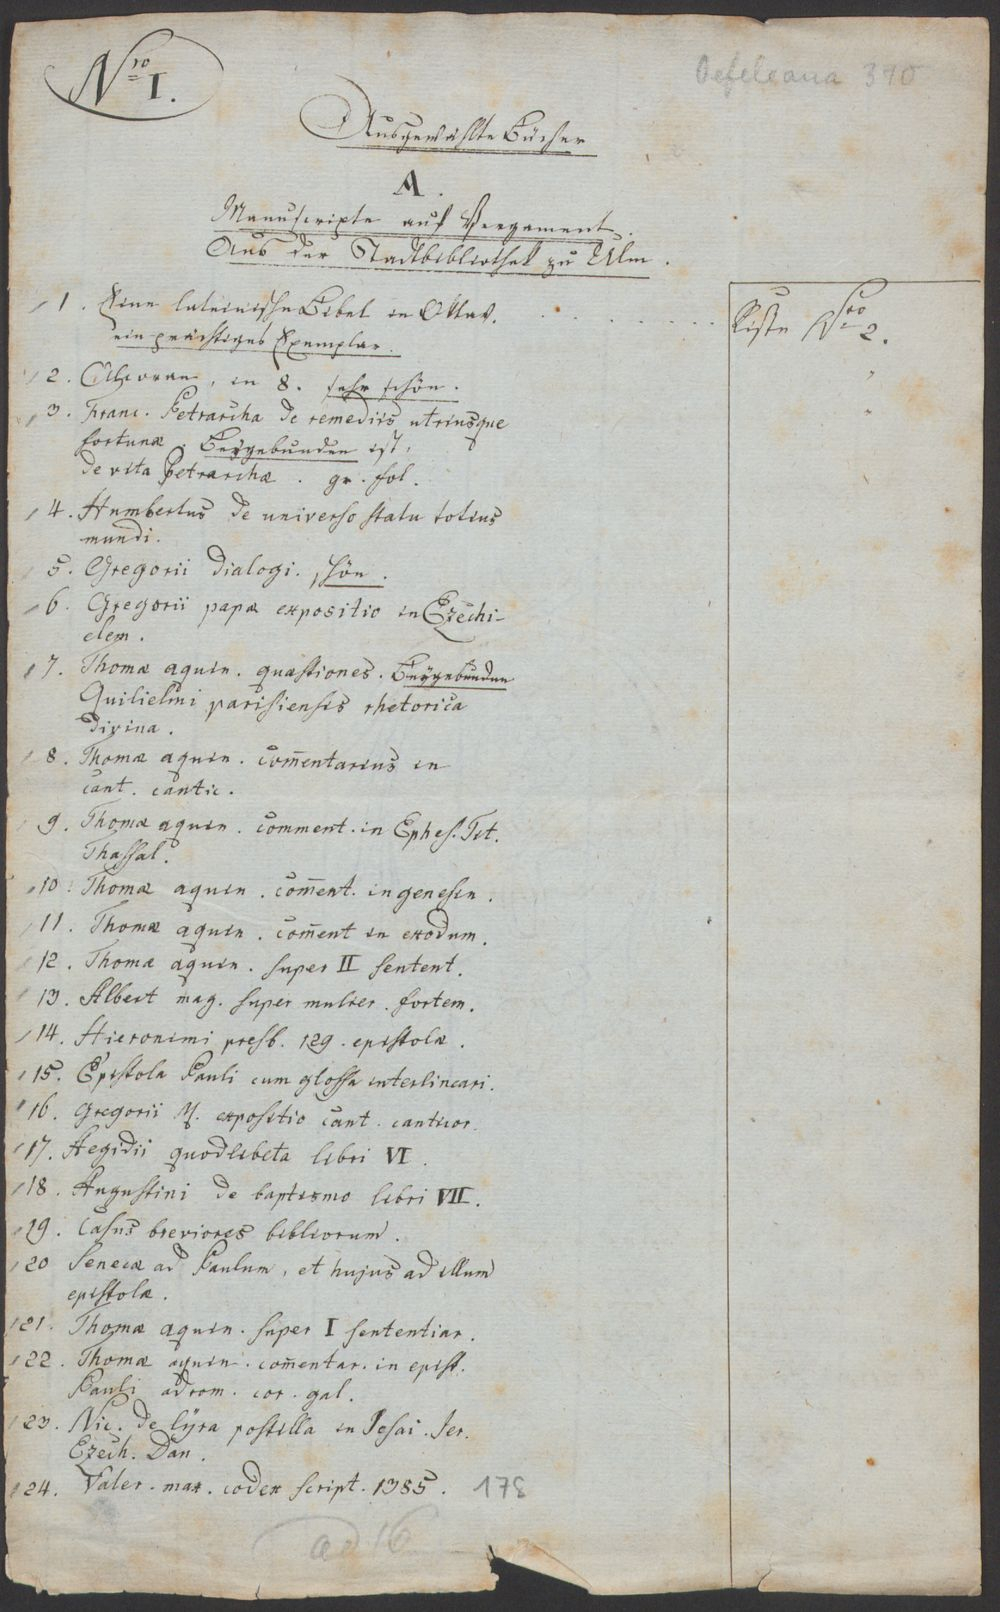 Nro I.
Oefeleana 370
Ausgewählte Bücher
A.
Manuscripte auf Pergament.
Aus der Stadtbibliothek zu Ulm.
1. Eine lateinische Bibel in Oktav.
ein prächtiges Exemplar.
Kiste Nro 2.
2. Alcoran, in 8. sehr schön. "
3. Franc. Petrarcha de remediis utriusque "
fortunæ. Beygebunden ist,
de vita Petrarchæ. gr. fol.
4. Humbertus de universo statu totius
mundi.
5. Gregorii Dialogi. schön.
6. Gregorii papæ expositio in Ezechi-
elem.
7. Thomæ aquin. quæstiones. Beygebunden
Guilielmi parisiensis rhetorica
divina.
8. Thomæ aquin. com̅entarius in
cant. cantic.
9. Thomæ aquin. comment. in Ephes. Tit.
Thassal.
10. Thomæ aquin. com̅ent. in genesin.
11. Thomæ aquin. com̅ent in exodum.
12. Thomæ aquin. super II sentent.
13. Albert mag. super mulier. fortem.
14. Hieronimi presb. 129. epistolæ.
15. Epistola Pauli cum glossa interlineari.
16. Gregorii M. expositio cant. canticor.
17. Aegidii quodlibeta libri VI.
18. Augustini de baptismo libri VII.
19. Casus breviores bibliorum.
20 Senecæ ad Paulum, et hujus ad illum
epistolæ.
21. Thomæ aquin. super I sententiar.
22. Thomæ aquin. com̅entar. in epist.
Pauli ad rom. cor. gal.
23. Nic. de lÿra postilla in Jesai. Jer.
Ezech. Dan.
24. Valer. max. codex script. 1385. 178
ad 16